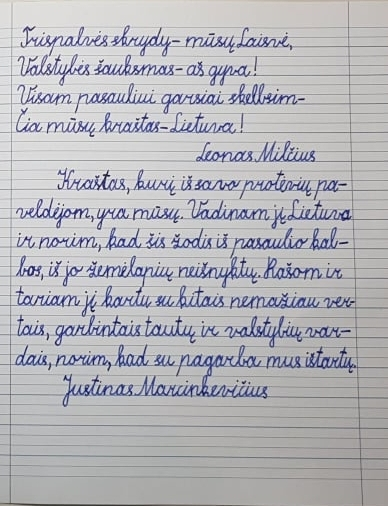 Trispalvės skrydy- mūsų Laisvė,
Valstybės šauksmas- aš gyva!
Visam pasauliui garsiai skelbsim-
Čia mūsų kraštas- Lietuva!
Leonas Milčius
Kraštas, kurį iš savo protėvių pa-
veldėjom, yra mūsų. Vadinam jį Lietuva
ir norim, kad šis žodis iš pasaulio kal-
bos, iš jo žemėlapių neišnyktų. Rašom ir
tariam jį kartu su kitais nemažiau ver-
tais, garbintais tautų ir valstybių var-
dais, norim, kad su pagarba mus ištartų.
Justinas Marcinkevičius